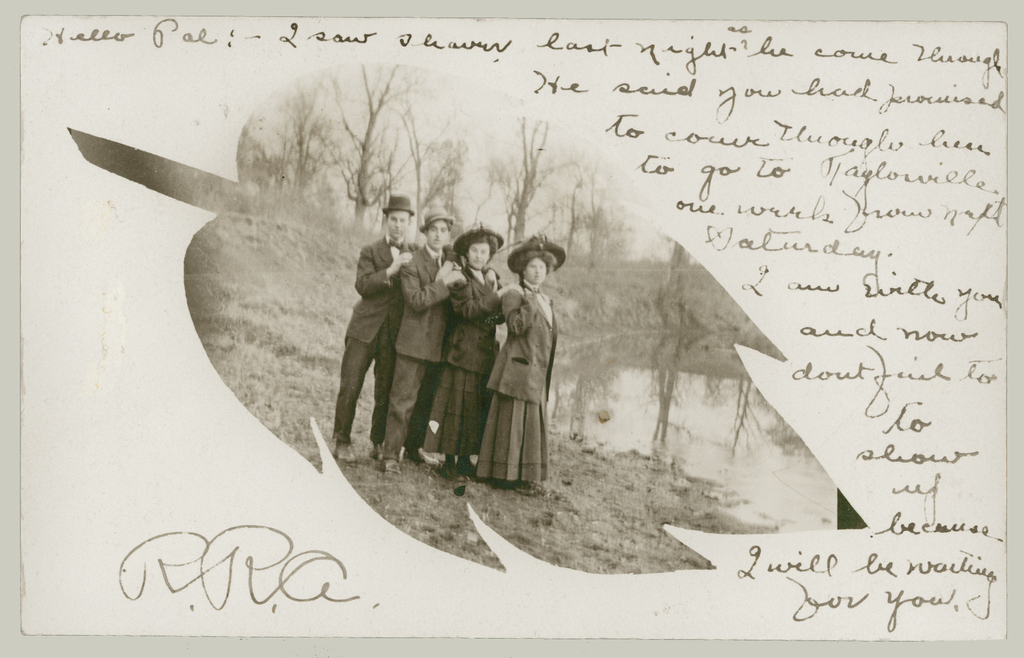 Hello Pal:- I saw last night as he come through
He said you had promised
to come through here
to go to Taylorville
one week from next
Saturday.
I am with you
and now
dont fail to
to
show
up
because
I will be waiting
for you.
R.R.A.